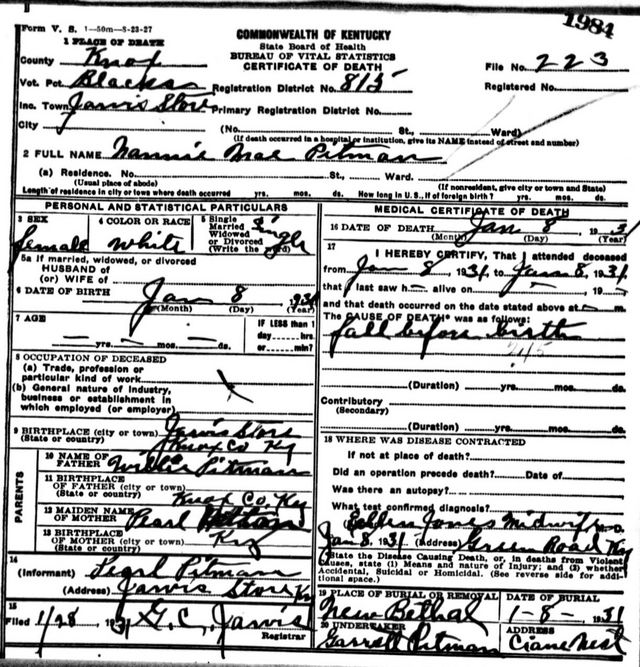 1984
Form V. S. 1-50m-8-23-27
COMMONWEALTH OF KENTUCKY
State Board of Health
BUREAU OF VITAL STATISTICS
CERTIFICATE OF DEATH
1 PLACE OF DEATH
County Knox
File No. 223
Vot. Pct. Blacks Registration District No. 815
Registered No.
Inc. Town Jarvis Store Primary Registration District No.
City (No. St., Ward)
(If death occurred in a hospital or institution, give its NAME instead of street and number)
2 FULL NAME Nannie Mae Pitman
(a) Residence. No. St., Ward.
(Usual place of abode) (If nonresident, give city or town and State)
Length of residence in city or town where death occurred yrs. mos. ds. How long in U. S., if of foreign birth? yrs. mos. ds.
PERSONAL AND STATISTICAL PARTICULARS
3 SEX
female
4 COLOR OR RACE
white
5 Single
Married
Widowed
or Divorced
(Write the word)
Single
5a If married, widowed, or divorced
HUSBAND of
(or) WIFE of
6 DATE OF BIRTH Jan 8 931
(Month) (Day) (Year)
7 AGE
— yrs. — mos. — ds.
IF LESS than 1
day hrs.
or min?
8 OCCUPATION OF DECEASED
(a) Trade, profession or
particular kind of work
(b) General nature of industry,
business or establishment in
which employed (or employer)
9 BIRTHPLACE (city or town) Jarvis Store
(State or country) Knox Co Ky
PARENTS
10 NAME OF
FATHER Willie Pitman
11 BIRTHPLACE
OF FATHER (city or town)
(State or country) Knox Co. Ky
12 MAIDEN NAME
OF MOTHER Pearl
13 BIRTHPLACE
OF MOTHER (city or town)
(State or country) Ky
14
(Informant) Pearl Pitman
(Address) Jarvis Store Ky
15
Filed 1/28 1931 G. C. Jarvis
Registrar
MEDICAL CERTIFICATE OF DEATH
16 DATE OF DEATH Jan 8 1931
(Month) (Day) (Year)
17
I HEREBY CERTIFY, That I attended deceased
from Jan 8, 1931, to Jan 8, 1931
that I last saw h— alive on — 19—
and that death occurred on the date stated above at — m.
The CAUSE OF DEATH* was as follows:
fall before birth
(Duration) yrs. mos. ds.
Contributory
(Secondary)
(Duration) yrs. mos. ds.
18 WHERE WAS DISEASE CONTRACTED
If not at place of death?
Did an operation precede death? Date of
Was there an autopsy?
What test confirmed diagnosis?
Jones Midwife M. D.
Jan 8, 1931 (Address) Road Ky
*State the Disease Causing Death, or, in deaths from Violent
Causes, state (1) Means and nature of Injury; and (2) whether
Accidental, Suicidal or Homicidal. (See reverse side for addi-
tional space.)
19 PLACE OF BURIAL OR REMOVAL
New Bethal
DATE OF BURIAL
1-8-1931
20 UNDERTAKER
Garrett Pitman
ADDRESS